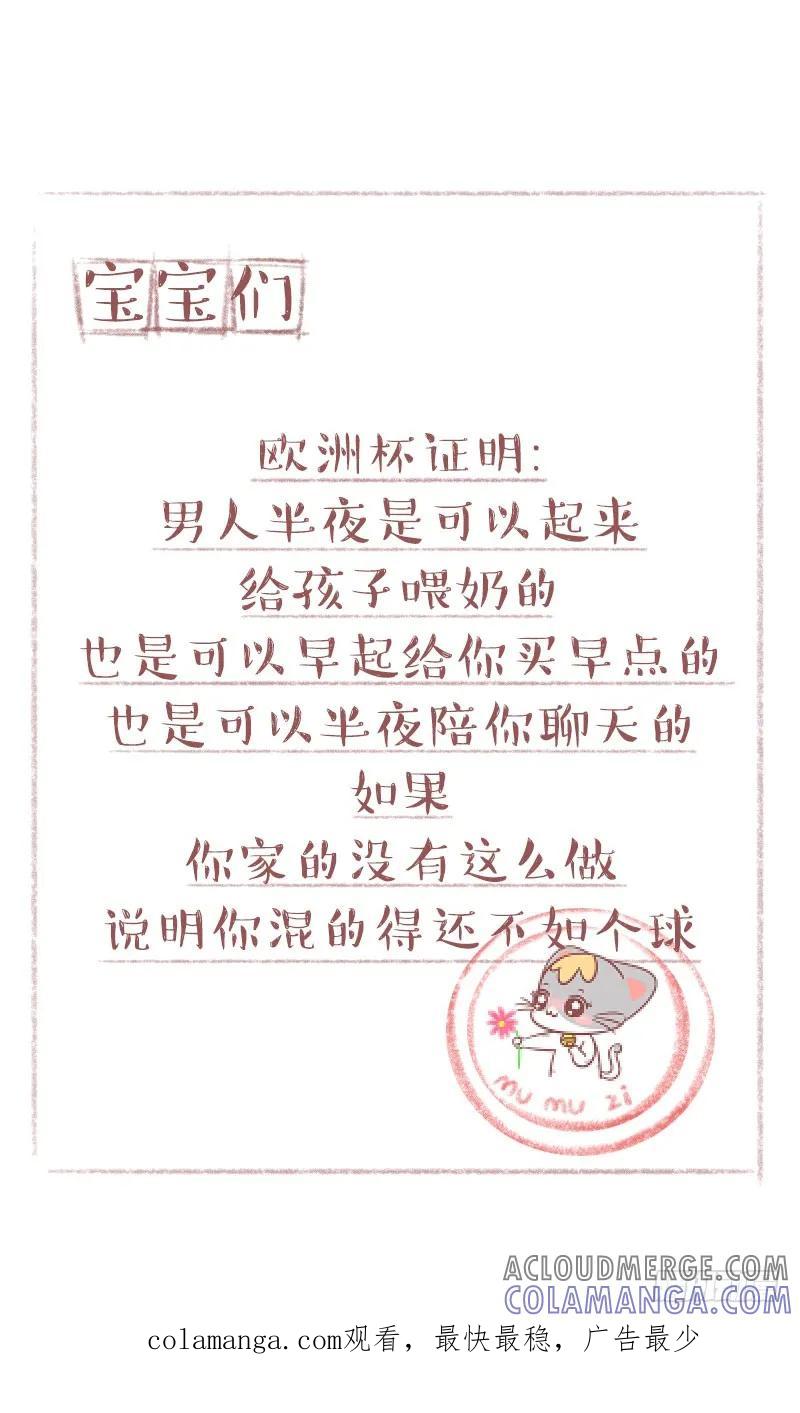 宝宝们
欧洲杯证明:
男人半夜是可以起来
给孩子喂奶的
也是可以早起给你买早点的
也是可以半夜陪你聊天的
如果
你家的没有这么做
说明你混的得还不如个球
mu mu zi
ACLOUDMERGE.COM
COLAMANGA.COM
colamanga.com观看，最快最稳，广告最少